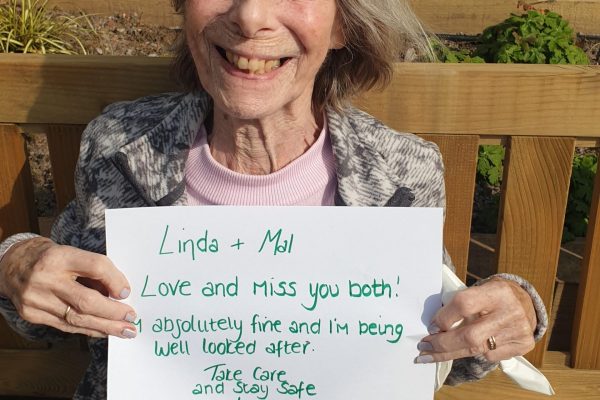 Linda + Mal
Love and miss you both!
absolutely fine and I'm being
well looked after.
Take Care
and Stay Safe